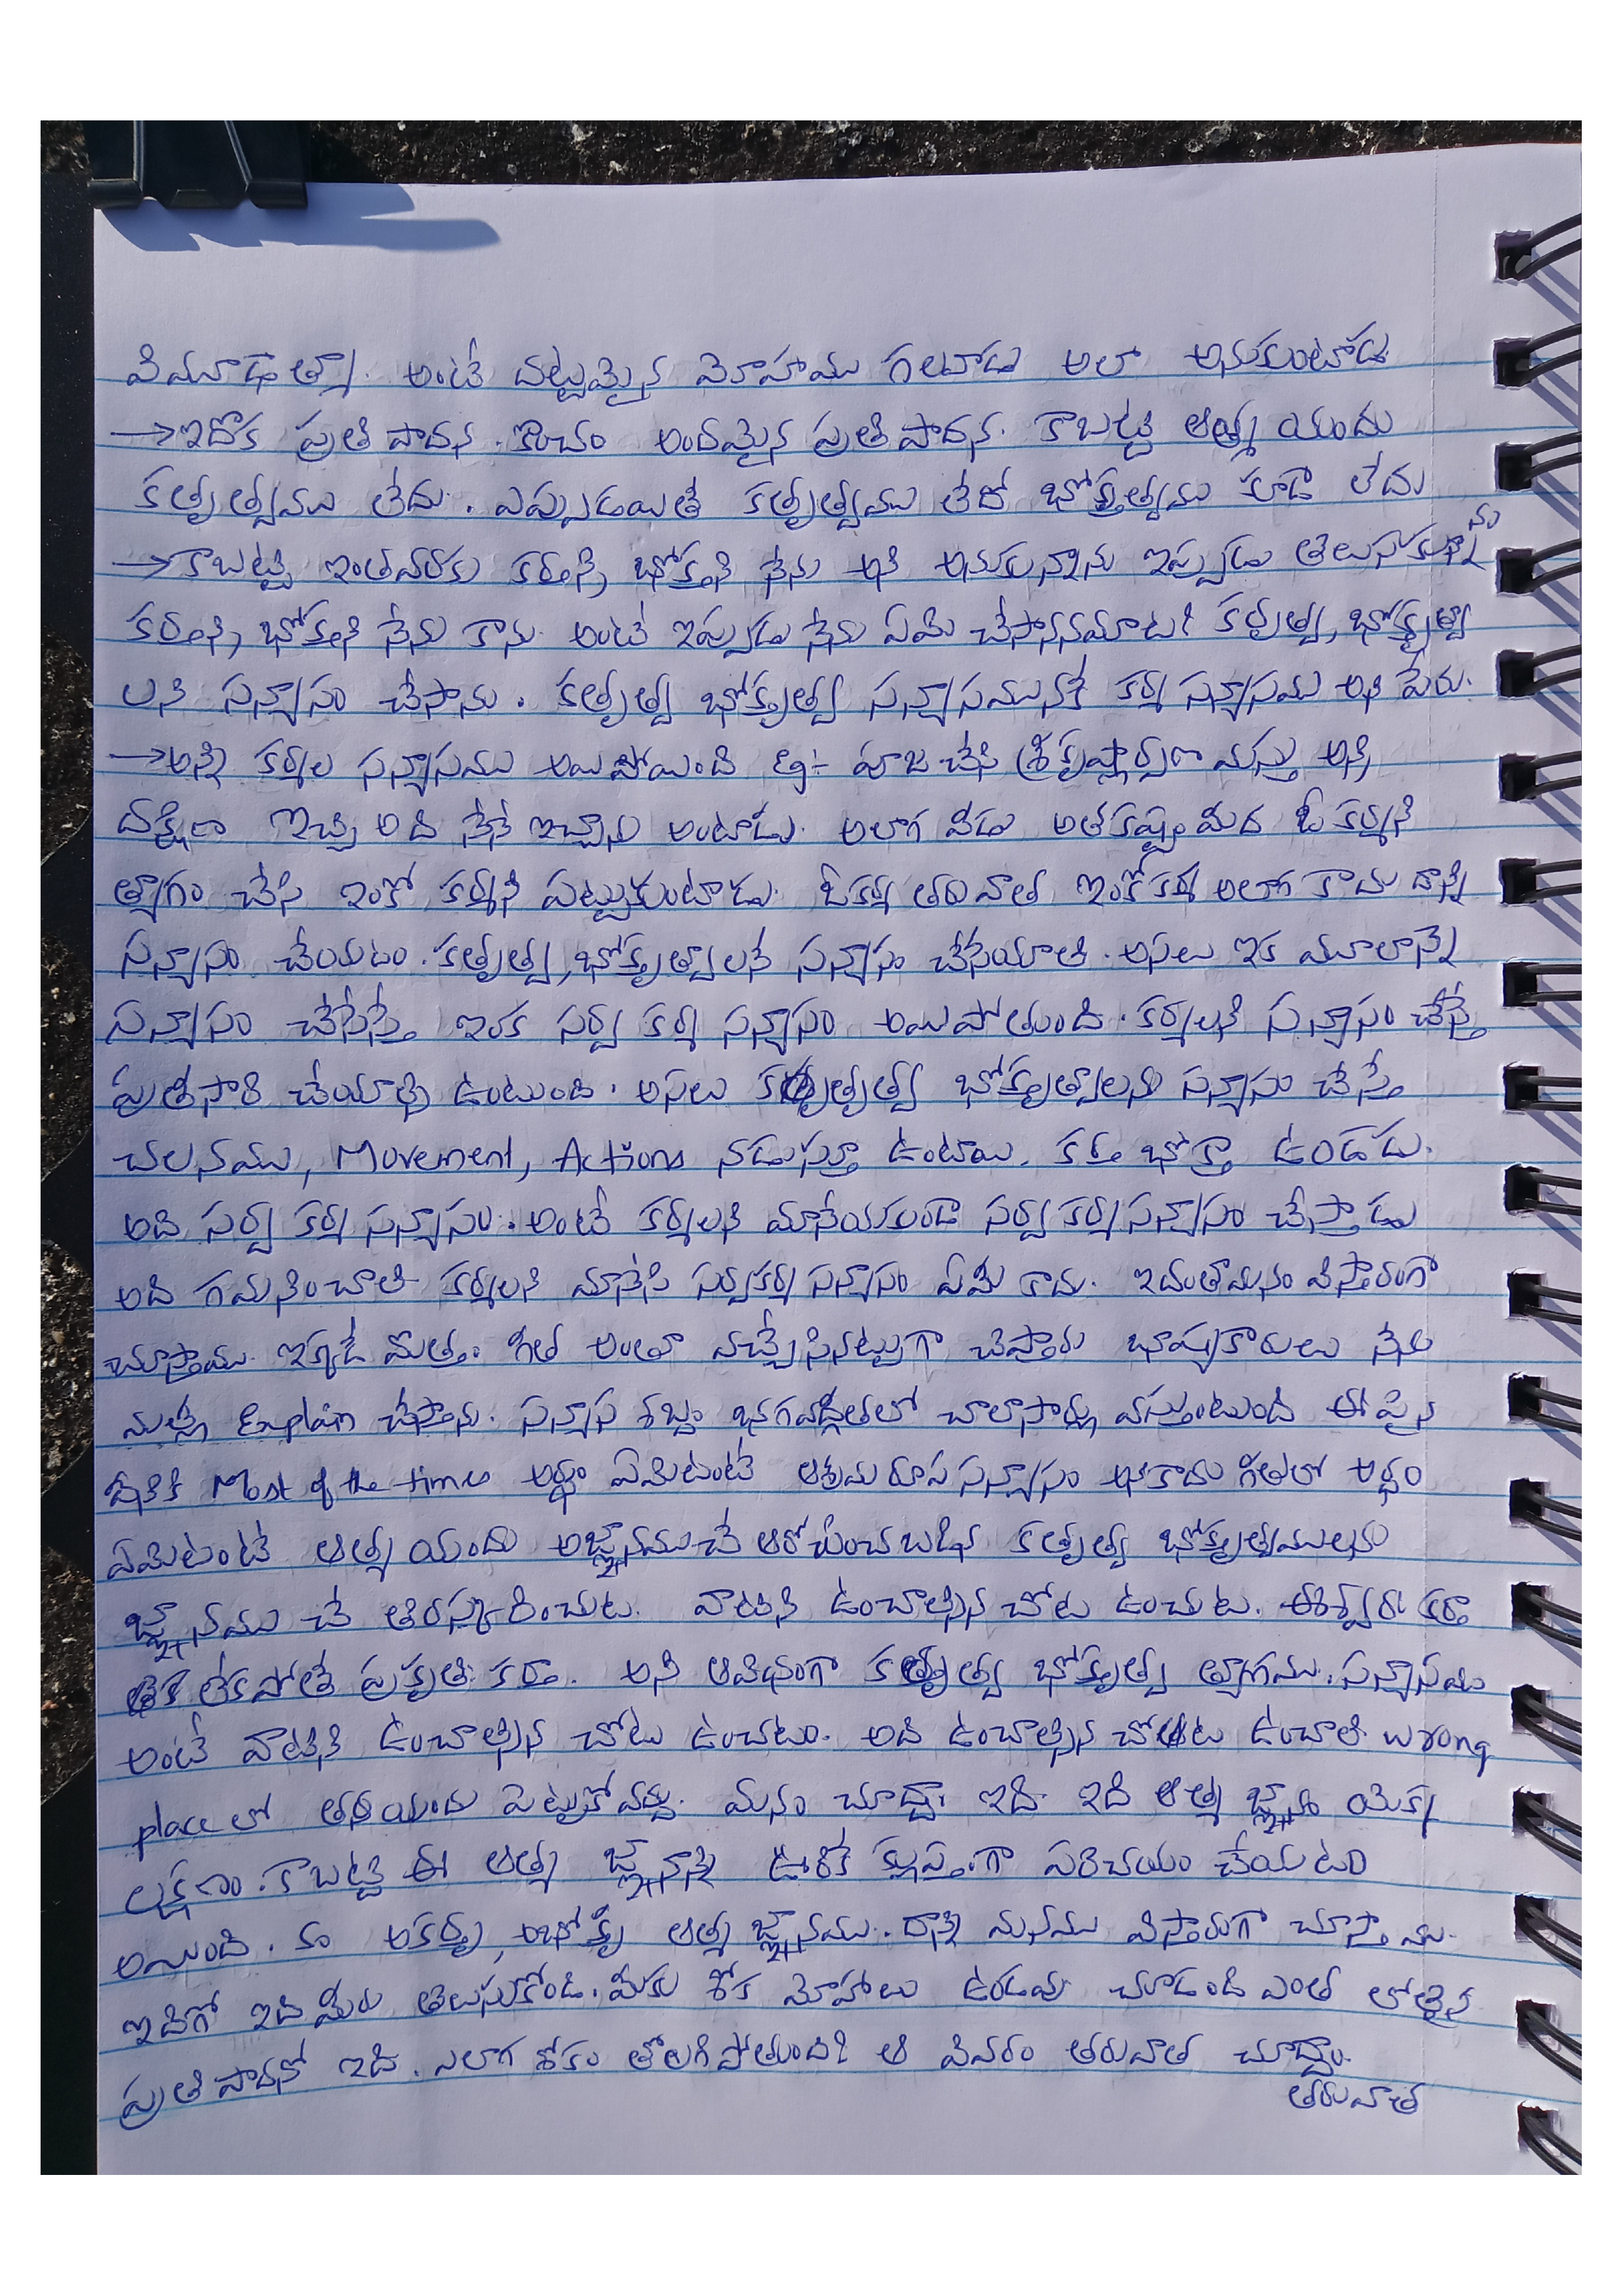 విమూఢాత్మా. అంటే దట్టమైన మోహము గలవాడు అలా అనుకుంటాడు
→ ఇదొక ప్రతిపాదన. కొంచం అందమైన ప్రతిపాదన. కాబట్టి ఆత్మ యందు
కర్తృత్వము లేదు. ఎప్పుడయితే కర్తృత్వము లేదో భోక్తృత్వము కూడా లేదు
→ కాబట్టి ఇంతవరకు కర్తని, భోక్తని నేను అని అనుకున్నాను ఇప్పుడు తెలుసుకున్నాను
కర్తని, భోక్తని నేను కాను. అంటే ఇప్పుడు నేను ఏమి చేసాననమాట? కర్తృత్వ, భోక్తృత్వా
లని సన్న్యాసం చేసాను. కర్తృత్వ భోక్తృత్వ సన్న్యాసమునకే కర్మ సన్న్యాసము అని పేరు.
→ అన్ని కర్మల సన్న్యాసము అయిపోయింది eg:- పూజ చేసి శ్రీకృష్ణార్పణ మస్తు అని,
దక్షిణా ఇచ్చి అది నేనే ఇచ్చాను అంటాడు. అలాగ వీడు అతికష్టం మీద ఓ కర్మని
త్యాగం చేసి ఇంకో కర్మని పట్టుకుంటాడు. ఓకర్మ తరువాత ఇంకోకర్మ అలాగ కాదు దాన్ని
సన్న్యాసం చేయటం. కర్తృత్వ, భోక్తృత్వాలనే సన్న్యాసం చేసేయాలి. అసలు ఇక మూలాన్నే
సన్న్యాసం చేసేస్తే ఇంక సర్వ కర్మ సన్న్యాసం అయిపోతుంది. కర్మలని సన్న్యాసం చేస్తే
ప్రతిసారి చేయాల్సి ఉంటుంది. అసలు కర్తృత్వ భోక్తృత్వాలని సన్న్యాసం చేస్తే
చలనము, Movement, Actions నడుస్తూ ఉంటాయి. కర్త భోక్తా ఉండడు.
అది సర్వ కర్మ సన్న్యాసం. అంటే కర్మలని మానేయకుండా సర్వకర్మ సన్న్యాసం చేస్తాడు
అది గమనించాలి కర్మలని మానేసి సర్వకర్మ సన్న్యాసం ఏమి కాదు. ఇదంతా మనం విస్తారంగా
చూస్తాము. ఇక్కడే మొత్తం గీత అంతా వచ్చేసినట్టుగా చెప్తారు భాష్యకారులు నేను
మళ్లీ Explain చేస్తాను. సన్న్యాస శబ్దం భగవద్గీతలో చాలాసార్లు వస్తుంటుంది ఈ పైన
దీనికి Most of the times అర్థం ఏమిటంటే ఆశ్రమ రూప సన్న్యాసం అనికాదు గీతలో అర్థం
ఏమిటంటే ఆత్మ యందు అజ్ఞానముచే ఆరోపించబడిన కర్తృత్వ భోక్తృత్వములను
జ్ఞానము చే తిరస్కరించుట. వాటిని ఉంచాల్సిన చోట ఉంచుట. ఈశ్వరః కర్తా
లేకపోతే ప్రకృతిః కర్తా. అని ఆవిధంగా కర్తృత్వ భోక్తృత్వ త్యాగము. సన్న్యాసము
అంటే వాటిని ఉంచాల్సిన చోటు ఉంచటం. అది ఉంచాల్సిన చోట ఉంచాలి wrong
place లో తనయందు పెట్టుకోవద్దు. మనం చూద్దాం ఇది. ఇది ఆత్మ జ్ఞానం యొక్క
లక్షణం. కాబట్టి ఈ ఆత్మ జ్ఞానాన్ని ఊరికే క్లుప్తంగా పరిచయం చేయటం
అయింది. అకర్తృ, అభోక్తృ ఆత్మ జ్ఞానము. దాన్ని మనము విస్తారంగా చూస్తాము.
ఇదిగో ఇది మీరు తెలుసుకోండి. మీకు శోక మోహాలు ఉండవు చూడండి ఎంత లోతైన
ప్రతిపాదనో ఇది. ఎలాగ శోకం తొలగిపోతుంది? ఆ వివరం తరువాత చూద్దాం.
తరువాత